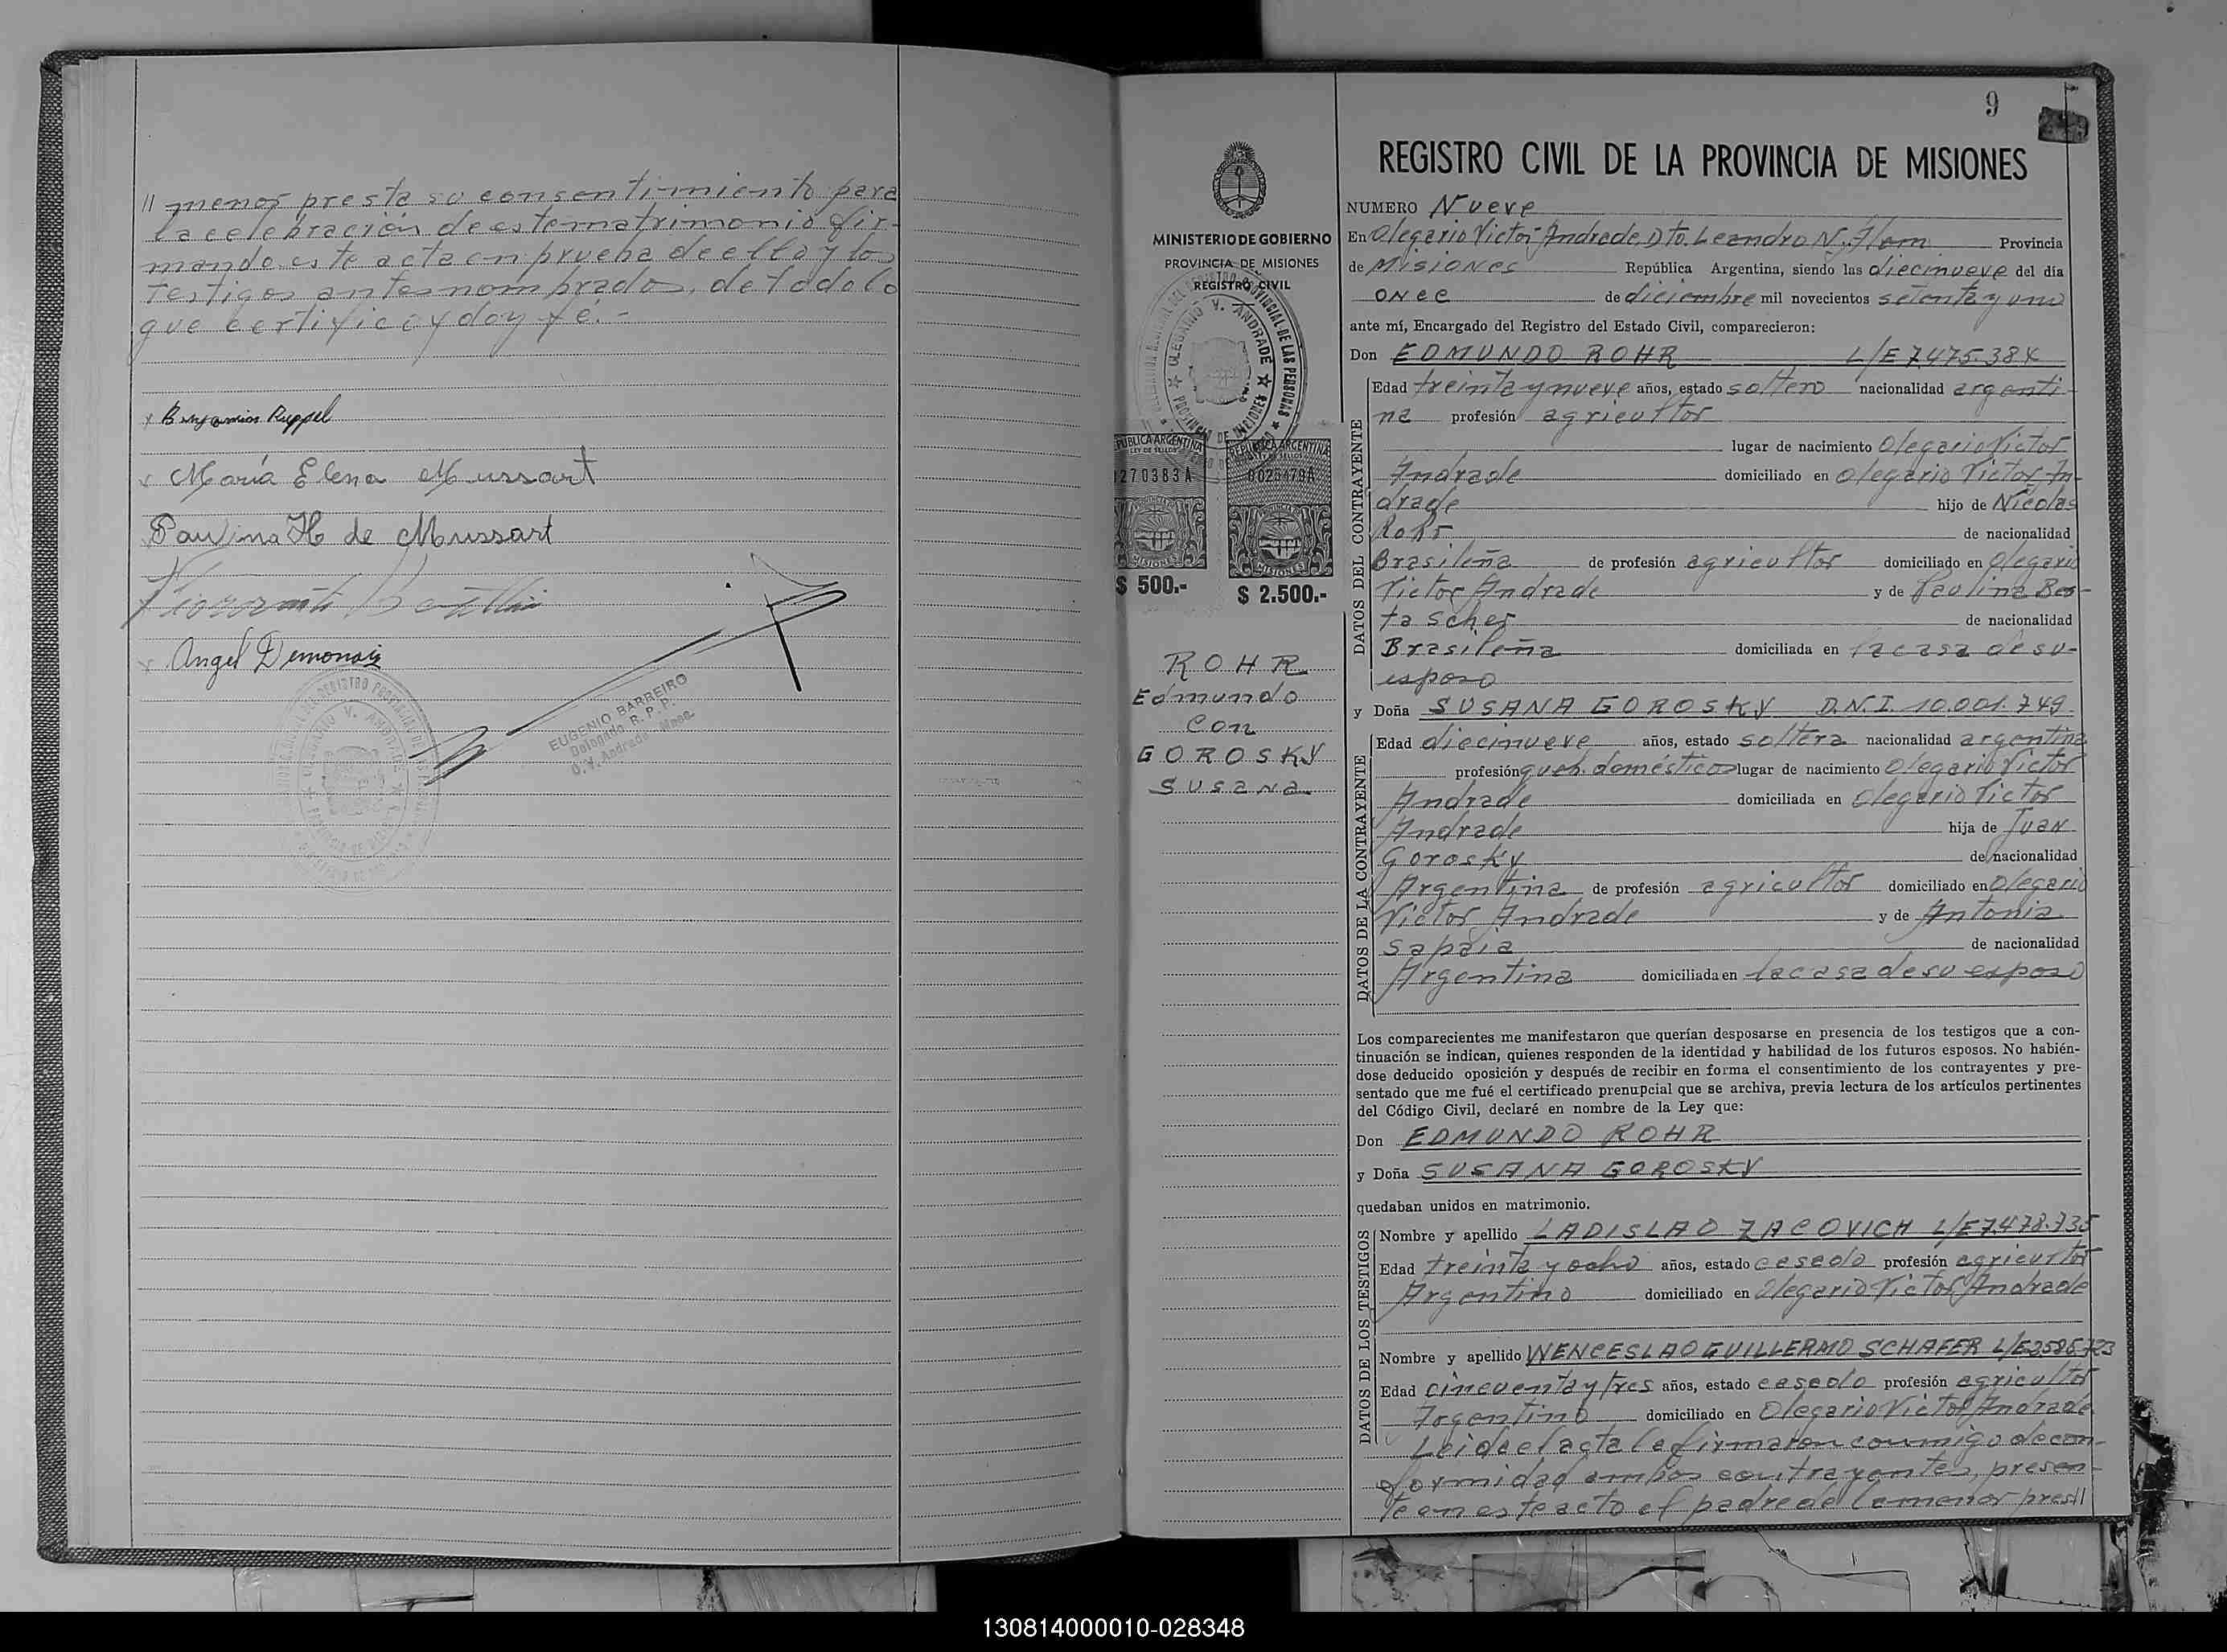 // menor presta su consentimiento para
la celebración de este matrimonio fir-
mando este acta en prueba de ello y los
testigos antes nombrados, de todo lo
que certifico y doy fé.-
x Benjamin Ruppel
x María Elena Mussart
Paulina H de Mussart
x Angel Demonaiz
EUGENIO BARREIRO
Delegado R. P. P.
O. V. Andrade - Mnes.
MINISTERIO DE GOBIERNO
PROVINCIA DE MISIONES
REGISTRO CIVIL
OLEGARIO V. ANDRADE
PROVINCIA DE MISIONES
REPUBLICA ARGENTINA
LEY DE SELLOS
270383A
0025479A
MISIONES
$ 500.-
$ 2.500.-
ROHR
Edmundo
Con
GOROSKY
Susana
9
REGISTRO CIVIL DE LA PROVINCIA DE MISIONES
NUMERO Nueve
En Olegario Victor Andrade Dto. Leandro N. Alem Provincia
de Misiones República Argentina, siendo las diecinueve del día
once de diciembre mil novecientos setenta y uno
ante mí, Encargado del Registro del Estado Civil, comparecieron:
Don EDMUNDO ROHR L/E 7.475.384
DATOS DEL CONTRAYENTE
Edad treinta y nueve años, estado soltero nacionalidad argenti-
na profesión agricultor
lugar de nacimiento Olegario Victor
Andrade domiciliado en Olegario Victor An-
drade hijo de Nicolas
Rohr de nacionalidad
Brasileña de profesión agricultor domiciliado en Olegario
Victor Andrade y de Paulina Ber-
ta Scher de nacionalidad
Brasileña domiciliada en la casa de su-
esposo
y Doña SUSANA GOROSKY D.N.I. 10.001.749
DATOS DE LA CONTRAYENTE
Edad diecinueve años, estado soltera nacionalidad argentina
profesión queh. domésticos lugar de nacimiento Olegario Victor
Andrade domiciliada en Olegario Victor
Andrade hija de Juan
Gorosky de nacionalidad
Argentina de profesión agricultor domiciliado en Olegario
Victor Andrade y de Antonia
Sapaia de nacionalidad
Argentina domiciliada en la casa de su esposo
Los comparecientes me manifestaron que querían desposarse en presencia de los testigos que a con-
tinuación se indican, quienes responden de la identidad y habilidad de los futuros esposos. No habién-
dose deducido oposición y después de recibir en forma el consentimiento de los contrayentes y pre-
sentado que me fué el certificado prenupcial que se archiva, previa lectura de los artículos pertinentes
del Código Civil, declaré en nombre de la Ley que:
Don EDMUNDO ROHR
y Doña SUSANA GOROSKY
quedaban unidos en matrimonio.
DATOS DE LOS TESTIGOS
Nombre y apellido LADISLAO ZACOVICH L/E 7.478.735
Edad treinta y ocho años, estado casado profesión agricultor
Argentino domiciliado en Olegario Victor Andrade
Nombre y apellido WENCESLAO GUILLERMO SCHAFER L/E
Edad cincuenta y tres años, estado casado profesión agricultor
Argentino domiciliado en Olegario Victor Andrade
Leida el acta la firmaron conmigo de con-
formidad ambos contrayentes, presen-
te en este acto el padre de la menor prest//
130814000010-028348